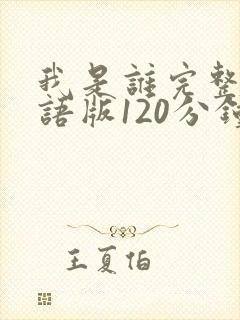 我是誰完整
語版120分鐘
王夏伯